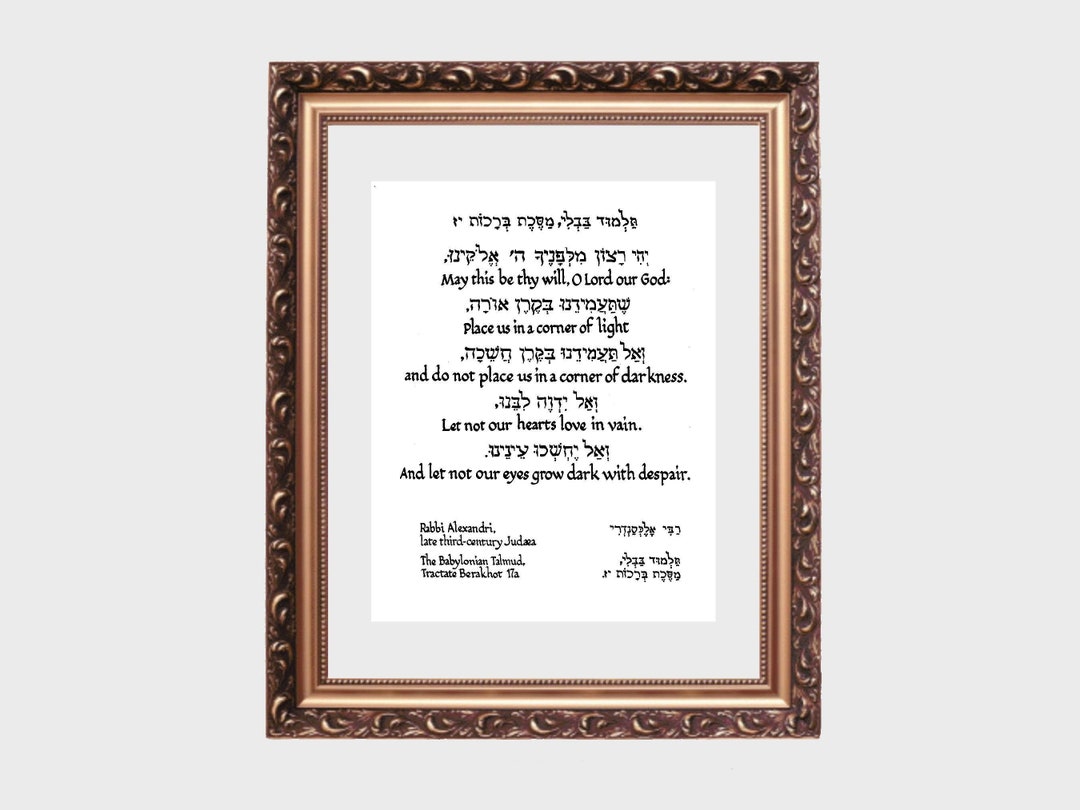 תַּלְמוּד בַּבְלִי, מַסֶּכֶת בְּרָכוֹת יז
יְהִי רָצוֹן מִלְּפָנֶיךָ ה׳ אֱלֹקֵינוּ,
May this be thy will, O Lord our God:
שֶׁתַּעֲמִידֵנוּ בְּקֶרֶן אוֹרָה,
Place us in a corner of light
וְאַל תַּעֲמִידֵנוּ בְּקֶרֶן חֲשֵׁכָה,
and do not place us in a corner of darkness.
וְאַל יִדְוֶה לִבֵּנוּ,
Let not our hearts love in vain.
וְאַל יֶחְשְׁכוּ עֵינֵינוּ.
And let not our eyes grow dark with despair.
Rabbi Alexandri,
late third-century Judæa
The Babylonian Talmud,
Tractate Berakhot 17a
רַבִּי אָלֶכְּסַנְדְרִי
תַּלְמוּד בַּבְלִי,
מַסֶּכֶת בְּרָכוֹת יז.